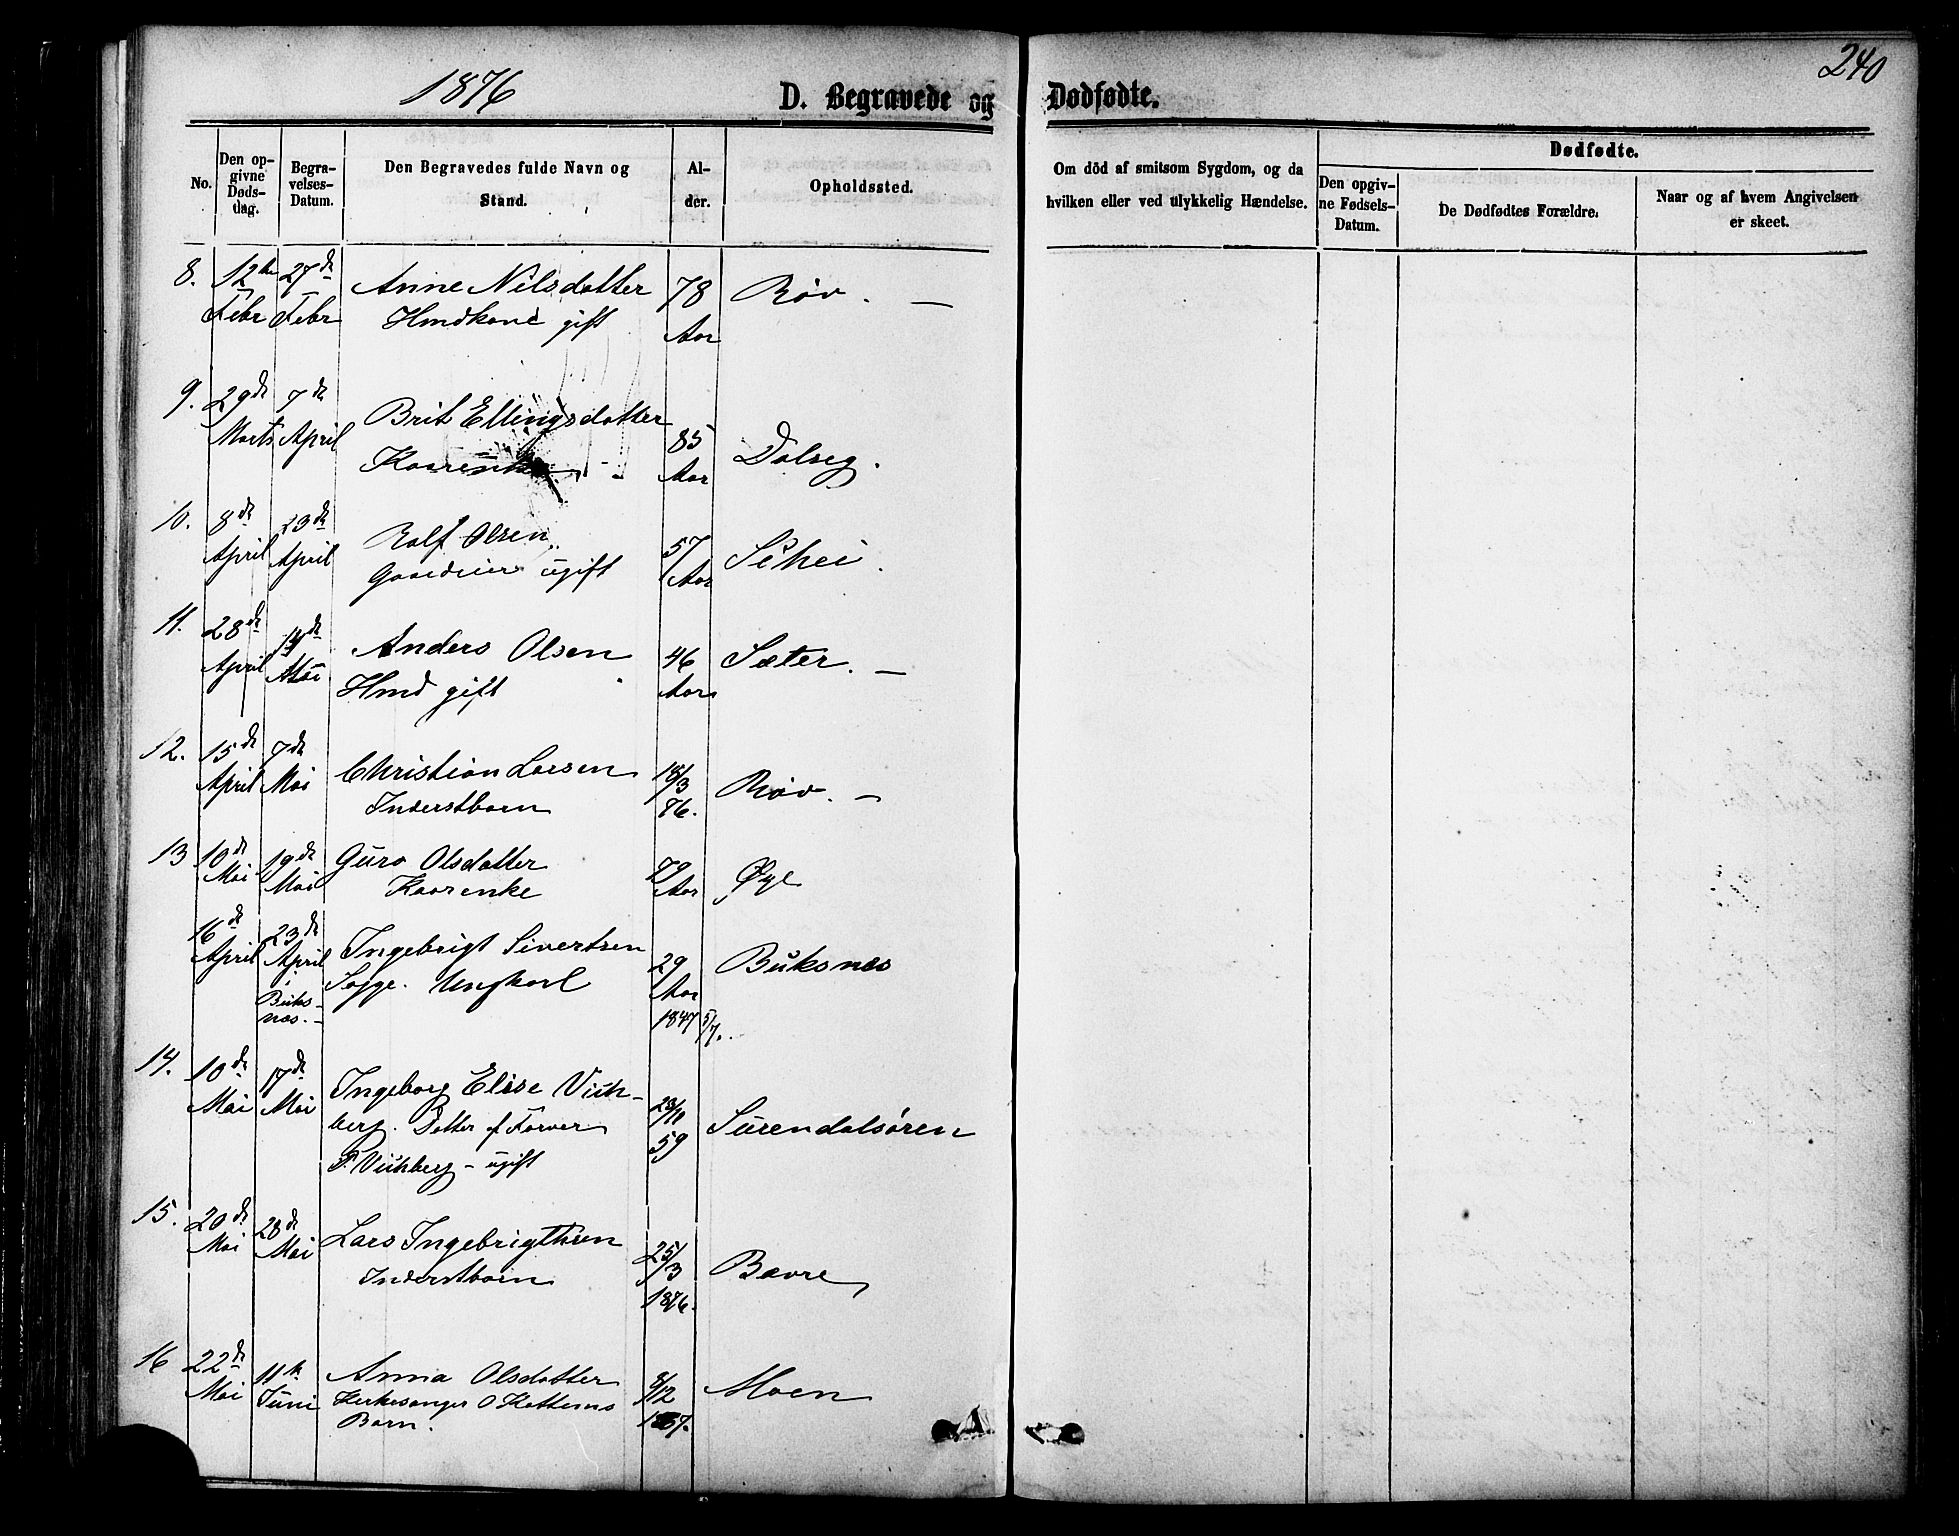 240
1876
D. Begravede og Dødfødte.
No.
Den opgivne Døds-dag.
Begra-velses-Datum.
Den Begravedes fulde Navn og Stand.
Al-der.
Opholdssted.
Om död af smitsom Sygdom, og da hvilken eller ved ulykkelig Hændelse.
Dødfødte.
Den opgiv-ne Fødsels-Datum.
De Dødfødtes Forældre.
Naar og af hvem Angivelsen er skeet.
8. 12te Febr 27de Febr Anne Nilsdatter 78 Aar Røv. —
Hmdkone gift
9. 29de Marts 7de April Brit Ellingsdatter 85 Aar Dalseg.
10. 8de April 23de April Rolf Olsen 57 Aar Sihei.
Gaardeier ugift
11. 28de April Mai Anders Olsen 46 Aar Sæter. —
Hmd gift
12. 15de April 7de Mai Christian Larsen 18/3 76. Røv. —
Inderstbarn
13 10de Mai 19de Mai Guro Olsdatter 79 Aar Øye
Kaarenke
16de April 23de April Buksnæs. Ingebrigt Sivertsen 29 Aar 1847 5/7. Buksnes
Sogge. Ungkarl
14. 10de Mai 17de Mai Ingeborg Elise Viih-
berg. Datter af Farver 23/11 59 Surendalsøren
P. Viihberg – ugift
15. 20de Mai 28de Mai Lars Ingebrigthsen 25/3 1876. Bævre
Inderstbarn
16 22de Mai 11te Juni Anna Olsdatter 8/12 Moen
Kirkesanger O Kattems
Barn.